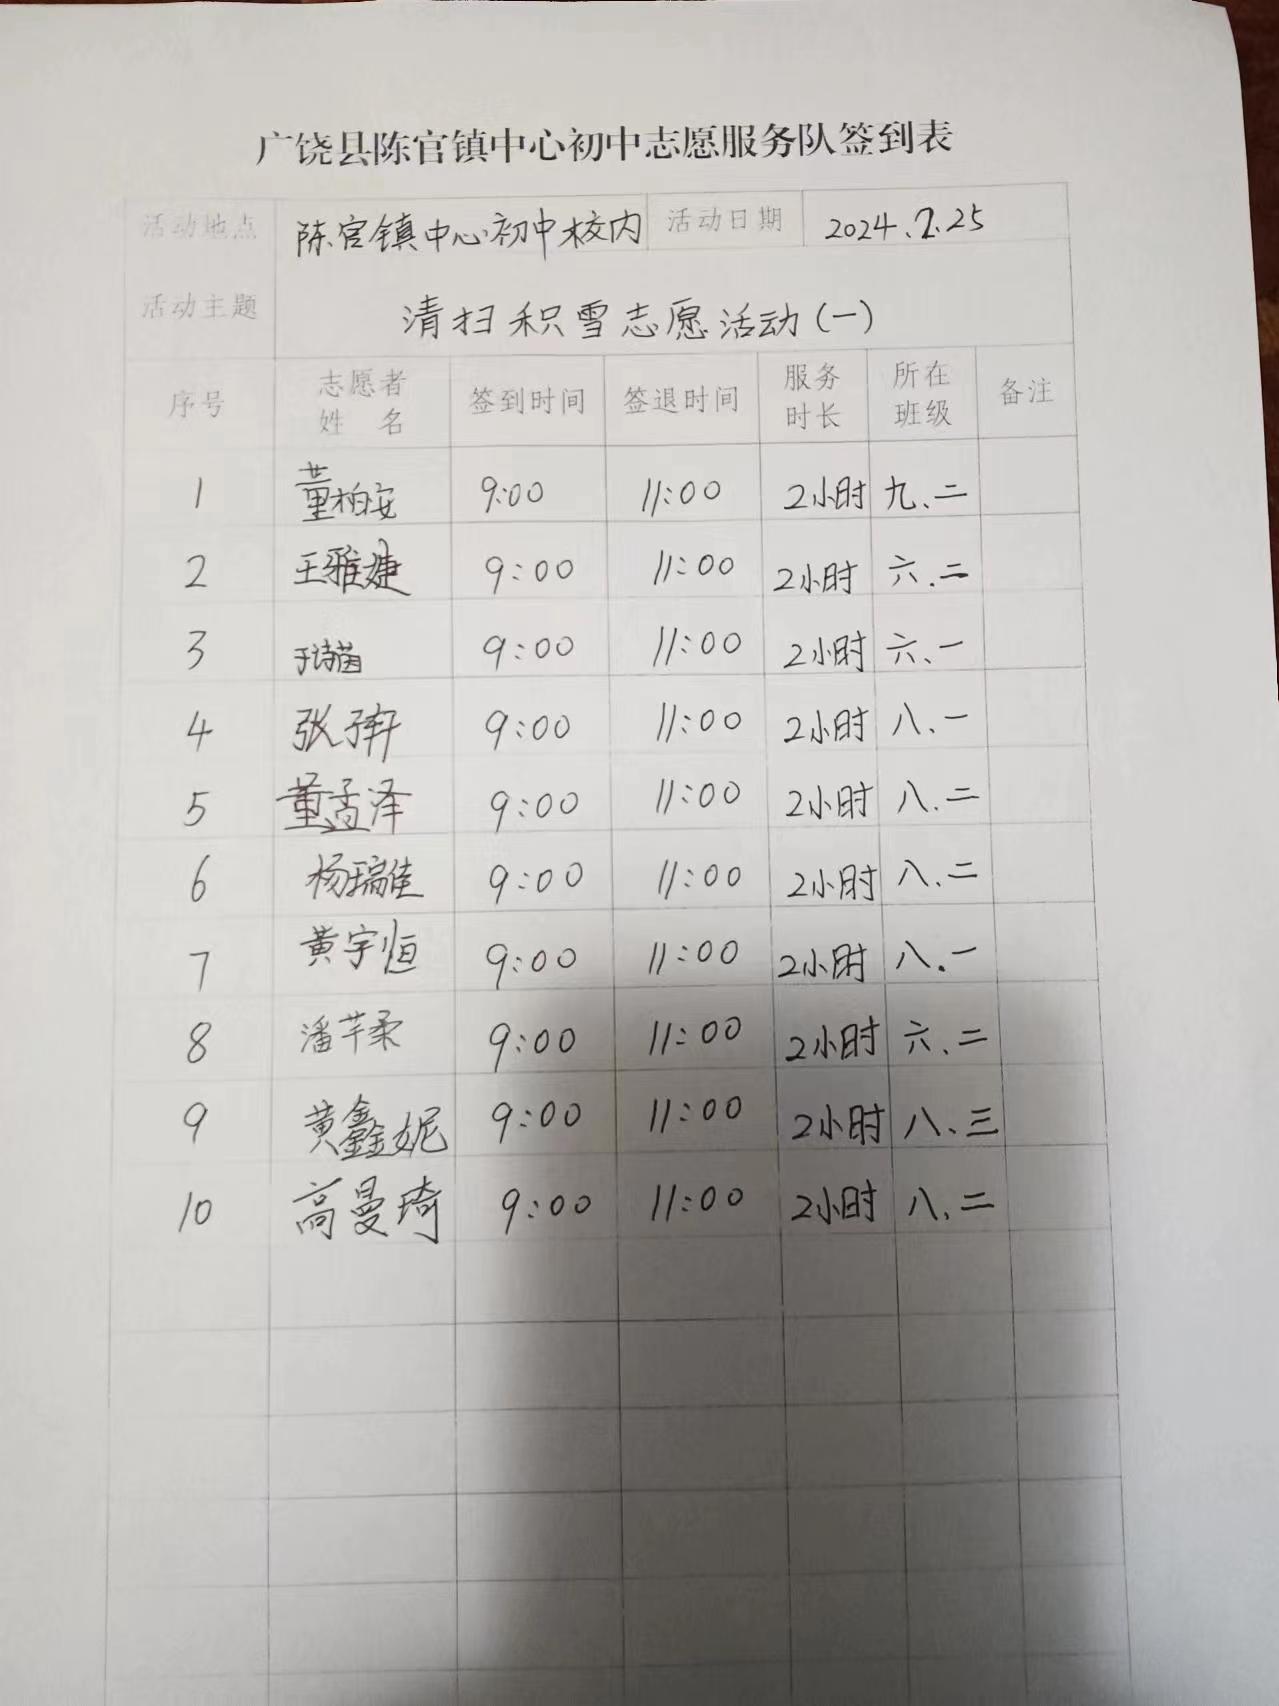 广饶县陈官镇中心初中志愿服务队签到表
活动地点 陈官镇中心初中校内 活动日期 2024.2.25
活动主题 清扫积雪志愿活动(一)
序号 志愿者姓名 签到时间 签退时间 服务时长 所在班级 备注
1 董柏安 9:00 11:00 2小时 九.二
2 王雅婕 9:00 11:00 2小时 六.二
3 于诗茵 9:00 11:00 2小时 六、一
4 张子轩 9:00 11:00 2小时 八.一
5 董孟泽 9:00 11:00 2小时 八.二
6 杨瑞佳 9:00 11:00 2小时 八.二
7 黄宇恒 9:00 11:00 2小时 八.一
8 潘芊柔 9:00 11:00 2小时 六、二
9 黄鑫妮 9:00 11:00 2小时 八、三
10 高曼琦 9:00 11:00 2小时 八.二